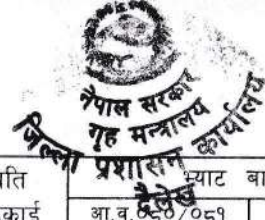 नेपाल सरकार
गृह मन्त्रालय
जिल्ला प्रशासन कार्यालय
दैलेख
प्रति
भ्याट बा
काई
आ.व.०८०/०८१